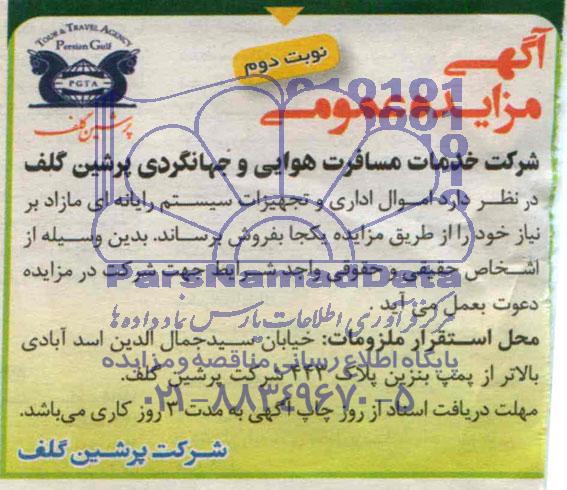 TOUR & TRAVEL AGENCY
Persian Gulf
PGTA
پرشین گلف
نوبت دوم
آگهی
مزایده عمومی
شرکت خدمات مسافرت هوایی و جهانگردی پرشین گلف
در نظر دارد اموال اداری و تجهیزات سیستم رایانه ای مازاد بر
نیاز خود را از طریق مزایده یکجا بفروش برساند. بدین وسیله از
اشخاص حقیقی و حقوقی واجد شرایط جهت شرکت در مزایده
دعوت بعمل می آید.
ParsNamadData
مرکز فرآوری اطلاعات پارس نماد داده ها
محل استقرار ملزومات: خیابان سیدجمال الدین اسد آبادی
پایگاه اطلاع رسانی مناقصه و مزایده
بالاتر از پمپ بنزین پلاک ۴۴۳ شرکت پرشین گلف.
۰۲۱-۸۸۳۴۹۶۷۰-۵
مهلت دریافت اسناد از روز چاپ آگهی به مدت ۳ روز کاری می‌باشد.
شرکت پرشین گلف